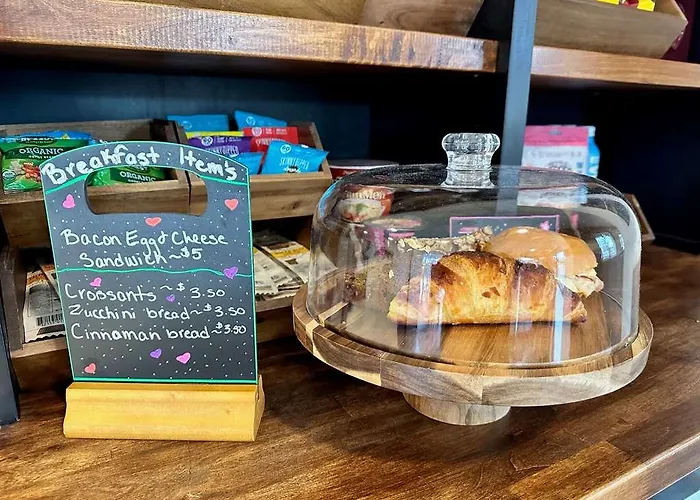 Breakfast Item's
Bacon Egg & Cheese
Sandwich ~ $5
Crossants ~ $3.50
Zucchini bread ~ $3.50
Cinnaman bread ~ $3.50
ORGANIC
ORGANIC